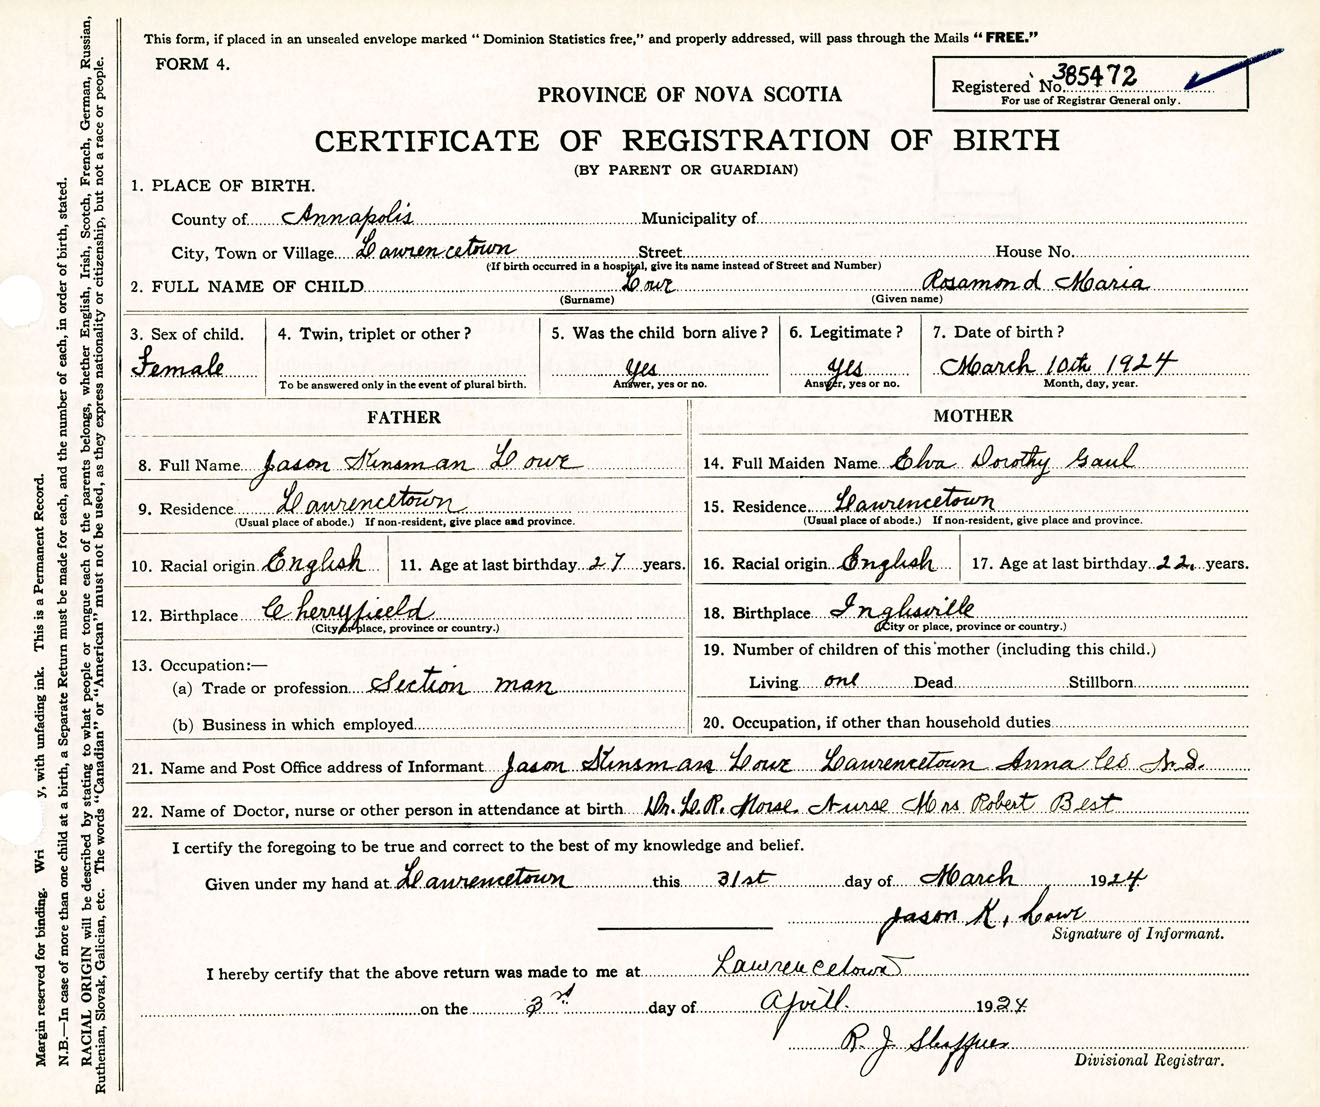 This form, if placed in an unsealed envelope marked “ Dominion Statistics free,” and properly addressed, will pass through the Mails “ FREE.”
FORM 4.
Registered No. 385472
For use of Registrar General only.
PROVINCE OF NOVA SCOTIA
CERTIFICATE OF REGISTRATION OF BIRTH
(BY PARENT OR GUARDIAN)
1. PLACE OF BIRTH.
County of Annapolis Municipality of
City, Town or Village Lawrencetown Street House No.
(If birth occurred in a hospital, give its name instead of Street and Number)
2. FULL NAME OF CHILD Lowe Rosamond Maria
(Surname) (Given name)
3. Sex of child. 4. Twin, triplet or other ? 5. Was the child born alive ? 6. Legitimate ? 7. Date of birth ?
Female Yes Yes March 10th 1924
To be answered only in the event of plural birth. Answer, yes or no. Answer, yes or no. Month, day, year.
FATHER
8. Full Name Jason Kinsman Lowe
9. Residence Lawrencetown
(Usual place of abode.) If non-resident, give place and province.
10. Racial origin English 11. Age at last birthday 27 years.
12. Birthplace Cherryfield
(City or place, province or country.)
13. Occupation:—
(a) Trade or profession Section man
(b) Business in which employed
MOTHER
14. Full Maiden Name Elva Dorothy Gaul
15. Residence Lawrencetown
(Usual place of abode.) If non-resident, give place and province.
16. Racial origin English 17. Age at last birthday 22. years.
18. Birthplace Inglisville
(City or place, province or country.)
19. Number of children of this mother (including this child.)
Living one Dead Stillborn
20. Occupation, if other than household duties
21. Name and Post Office address of Informant Jason Kinsman Lowe Lawrencetown Anna Co N.S.
22. Name of Doctor, nurse or other person in attendance at birth Dr. L.R. Morse. Nurse Mrs Robert Best
I certify the foregoing to be true and correct to the best of my knowledge and belief.
Given under my hand at Lawrencetown this 31st day of March 1924
Jason K. Lowe
Signature of Informant.
I hereby certify that the above return was made to me at Lawrencetown
on the 3rd day of April. 1924
R. J. Shaffner
Divisional Registrar.
Margin reserved for binding. Wri y, with unfading ink. This is a Permanent Record.
N.B.—In case of more than one child at a birth, a Separate Return must be made for each, and the number of each, in order of birth, stated.
RACIAL ORIGIN will be described by stating to what people or tongue each of the parents belongs, whether English, Irish, Scotch, French, German, Russian,
Ruthenian, Slovak, Galician, etc. The words “Canadian” or “American” must not be used, as they express nationality or citizenship, but not a race or people.